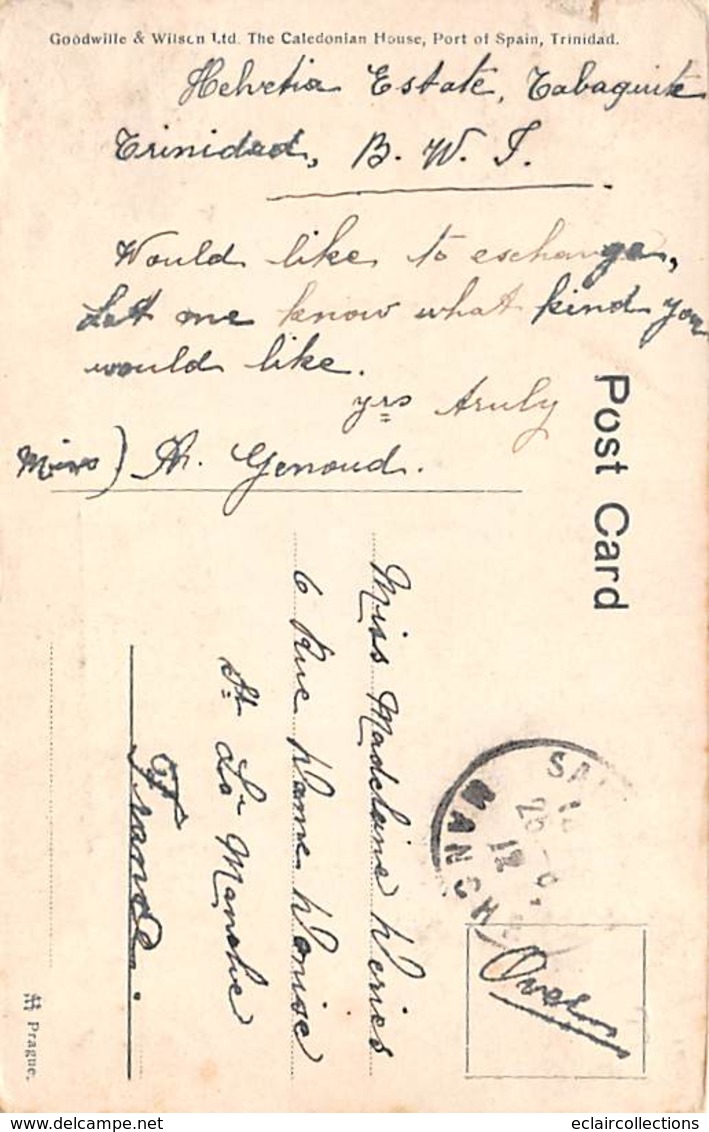 Goodwille & Wilson Ltd. The Caledonian House, Port of Spain, Trinidad.
Helvetia Estate, Tabaquite
Trinidad, B. W. I.
Would like to exchange,
Let me know what kind you
would like.
yrs truly
Miss) M. Genoud.
Post Card
Miss Madeleine
6 Rue Dame Denise
St Lo Manche
France.
SA
26
12
MANCHE
Over
Prague.
eclaircollections